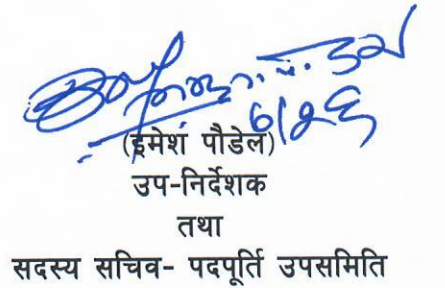 ६/२६
(इमेश पौडेल)
उप-निर्देशक
तथा
सदस्य सचिव- पदपूर्ति उपसमिति